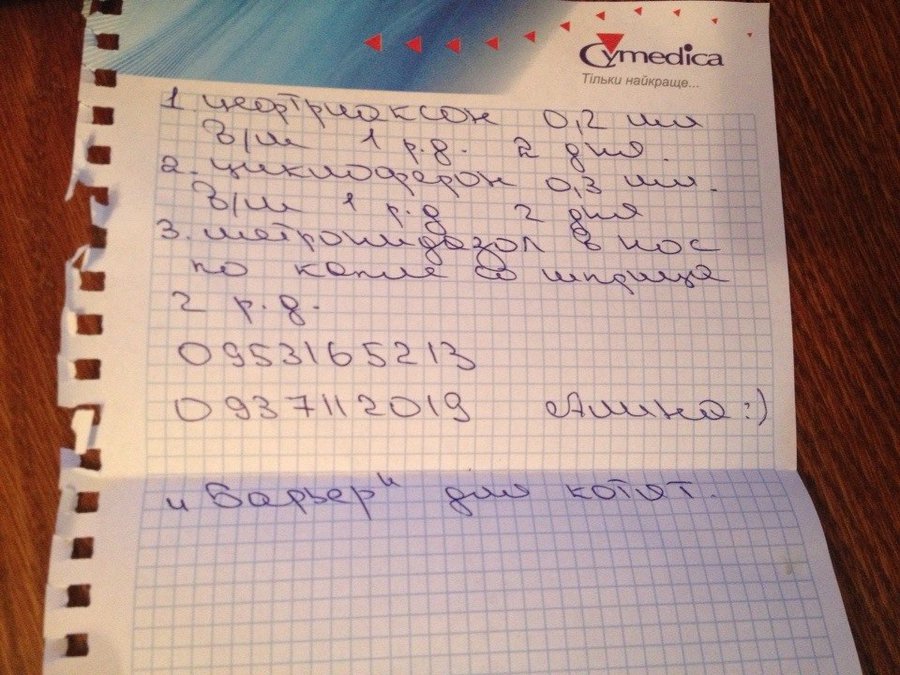 Cymedica
Тільки найкраще...
1. цефтриаксон 0,2 мл
в/м 1 р.д. 2 дня.
2. циклоферон 0,3 мл.
в/м 1 р.д 2 дня
3. метронидазол в нос
по капле со шприца
2 р.д.
0953165213
0937112019 Алина :)
"Барьер" для котят.